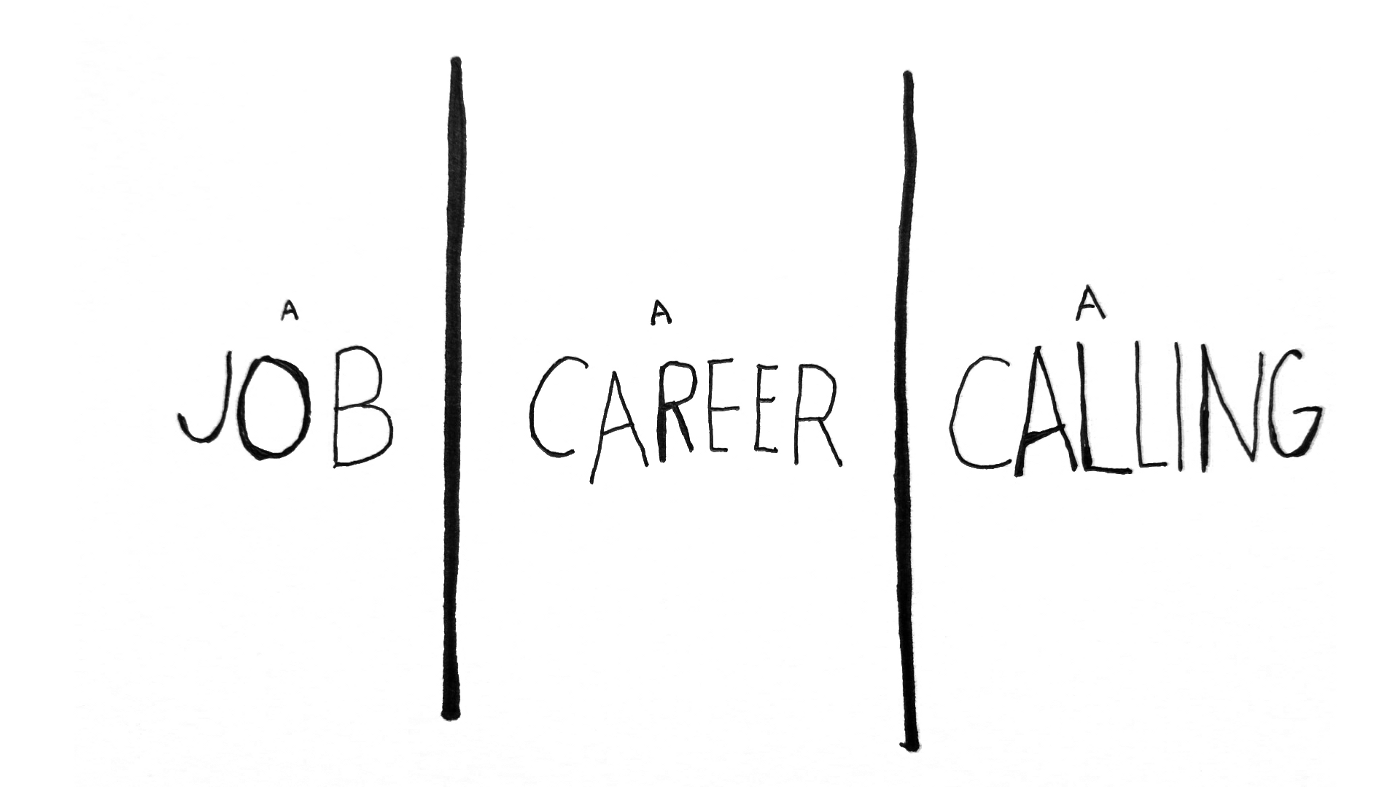 A
JOB
A
CAREER
A
CALLING